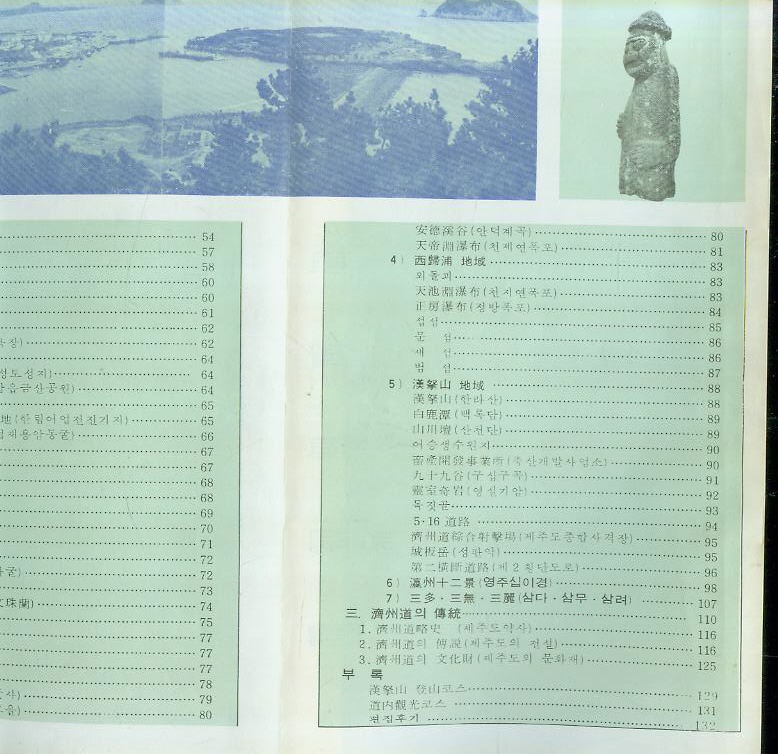 54
57
58
60
60
61
62
62
64
성토성지) 64
남읍금산공원) 64
65
地(한림어업전진기지) 65
협재용암동굴) 66
67
67
68
68
69
70
71
72
굴) 72
73
文珠蘭) 74
75
77
77
77
78
사) 79
80
安德溪谷(안덕계곡) 80
天帝淵瀑布(천제연폭포) 81
4) 西歸浦 地域 83
외돌괴 83
天池淵瀑布(천지연폭포) 83
正房瀑布(정방폭포) 84
섭섬 85
문 섬 86
새 섬 86
범 섬 87
5) 漢拏山 地域 88
漢拏山(한라산) 88
白鹿潭(백록담) 89
山川壇(산천단) 89
어승생수원지 90
畜産開發事業所(축산개발사업소) 90
九十九谷(구십구곡) 91
靈室奇岩(영실기암) 92
목짓골 93
5·16 道路 94
濟州道綜合射擊場(제주도종합사격장) 95
城板岳(성판악) 95
第二橫斷道路(제2횡단도로) 96
6) 瀛州十二景(영주십이경) 98
7) 三多·三無·三麗(삼다·삼무·삼려) 107
三. 濟州道의 傳統 110
1. 濟州道略史 (제주도약사) 116
2. 濟州道의 傳說(제주도의 전설) 116
3. 濟州道의 文化財(제주도의 문화재) 125
부 록
漢拏山 登山코스 129
道內觀光코스 131
편집후기 132